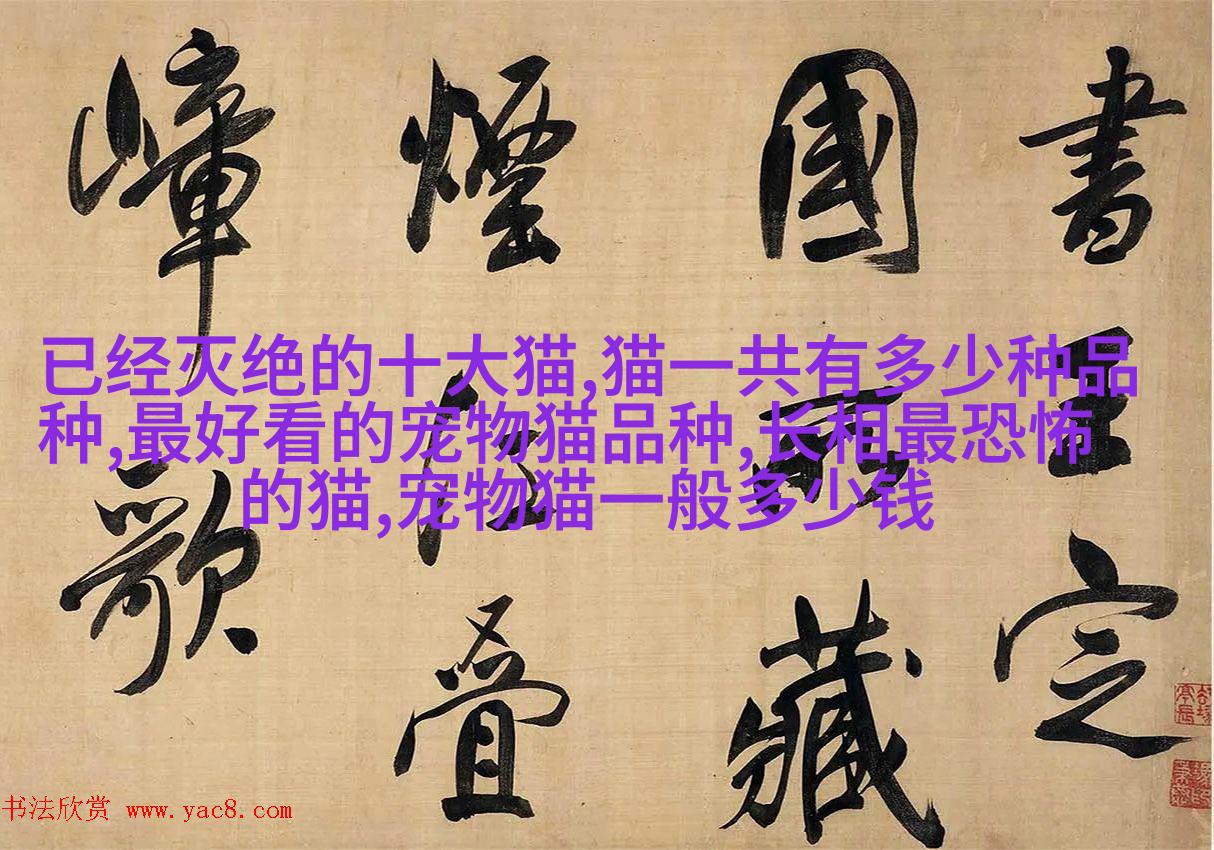 書王定
國所藏
煙江疊
嶂歌
已经灭绝的十大猫,猫一共有多少种品
种,最好看的宠物猫品种,长相最恐怖
的猫,宠物猫一般多少钱
书法欣赏 www.yac8.com